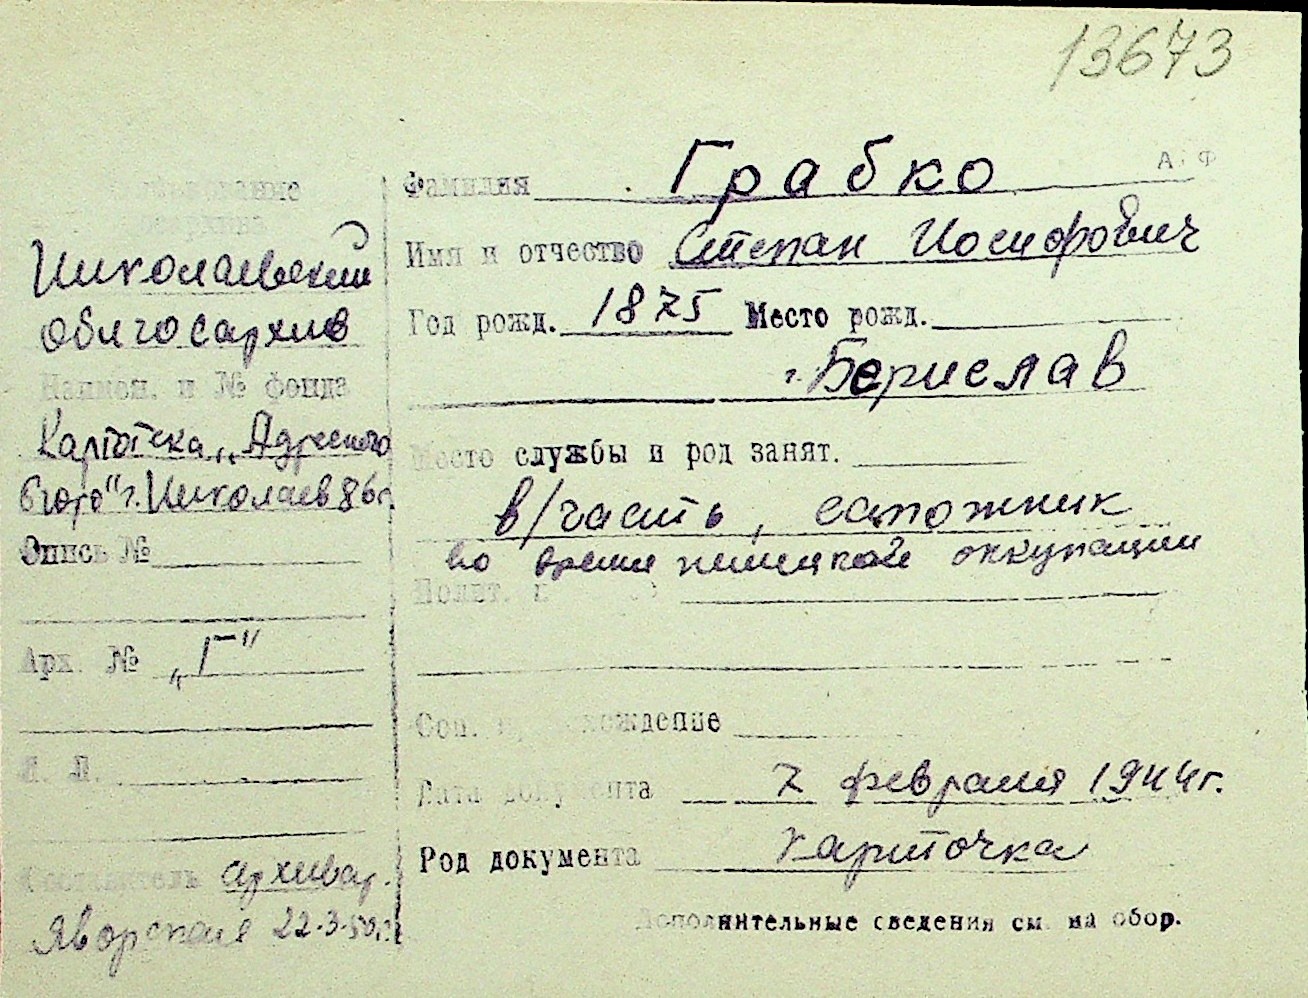 13673
А. Ф
Фамилия Грабко
Имя и отчество Степан Иосифович
Год рожд. 1875 Место рожд.
г. Берислав
Место службы и род занят.
в/часть, сапожник
во время немецкой оккупации
Полит.
Соц. происхождение
Дата документа 7 февраля 1944г.
Род документа карточка
Дополнительные сведения см. на обор.
Николаевский
облгосархив
Наимен. и № фонда
Картотека „Адресного
бюро" г. Николаев
Опись №
Арх. № „Г"
Л. Л.
Составитель архивар.
Яворская 22.3.50г.